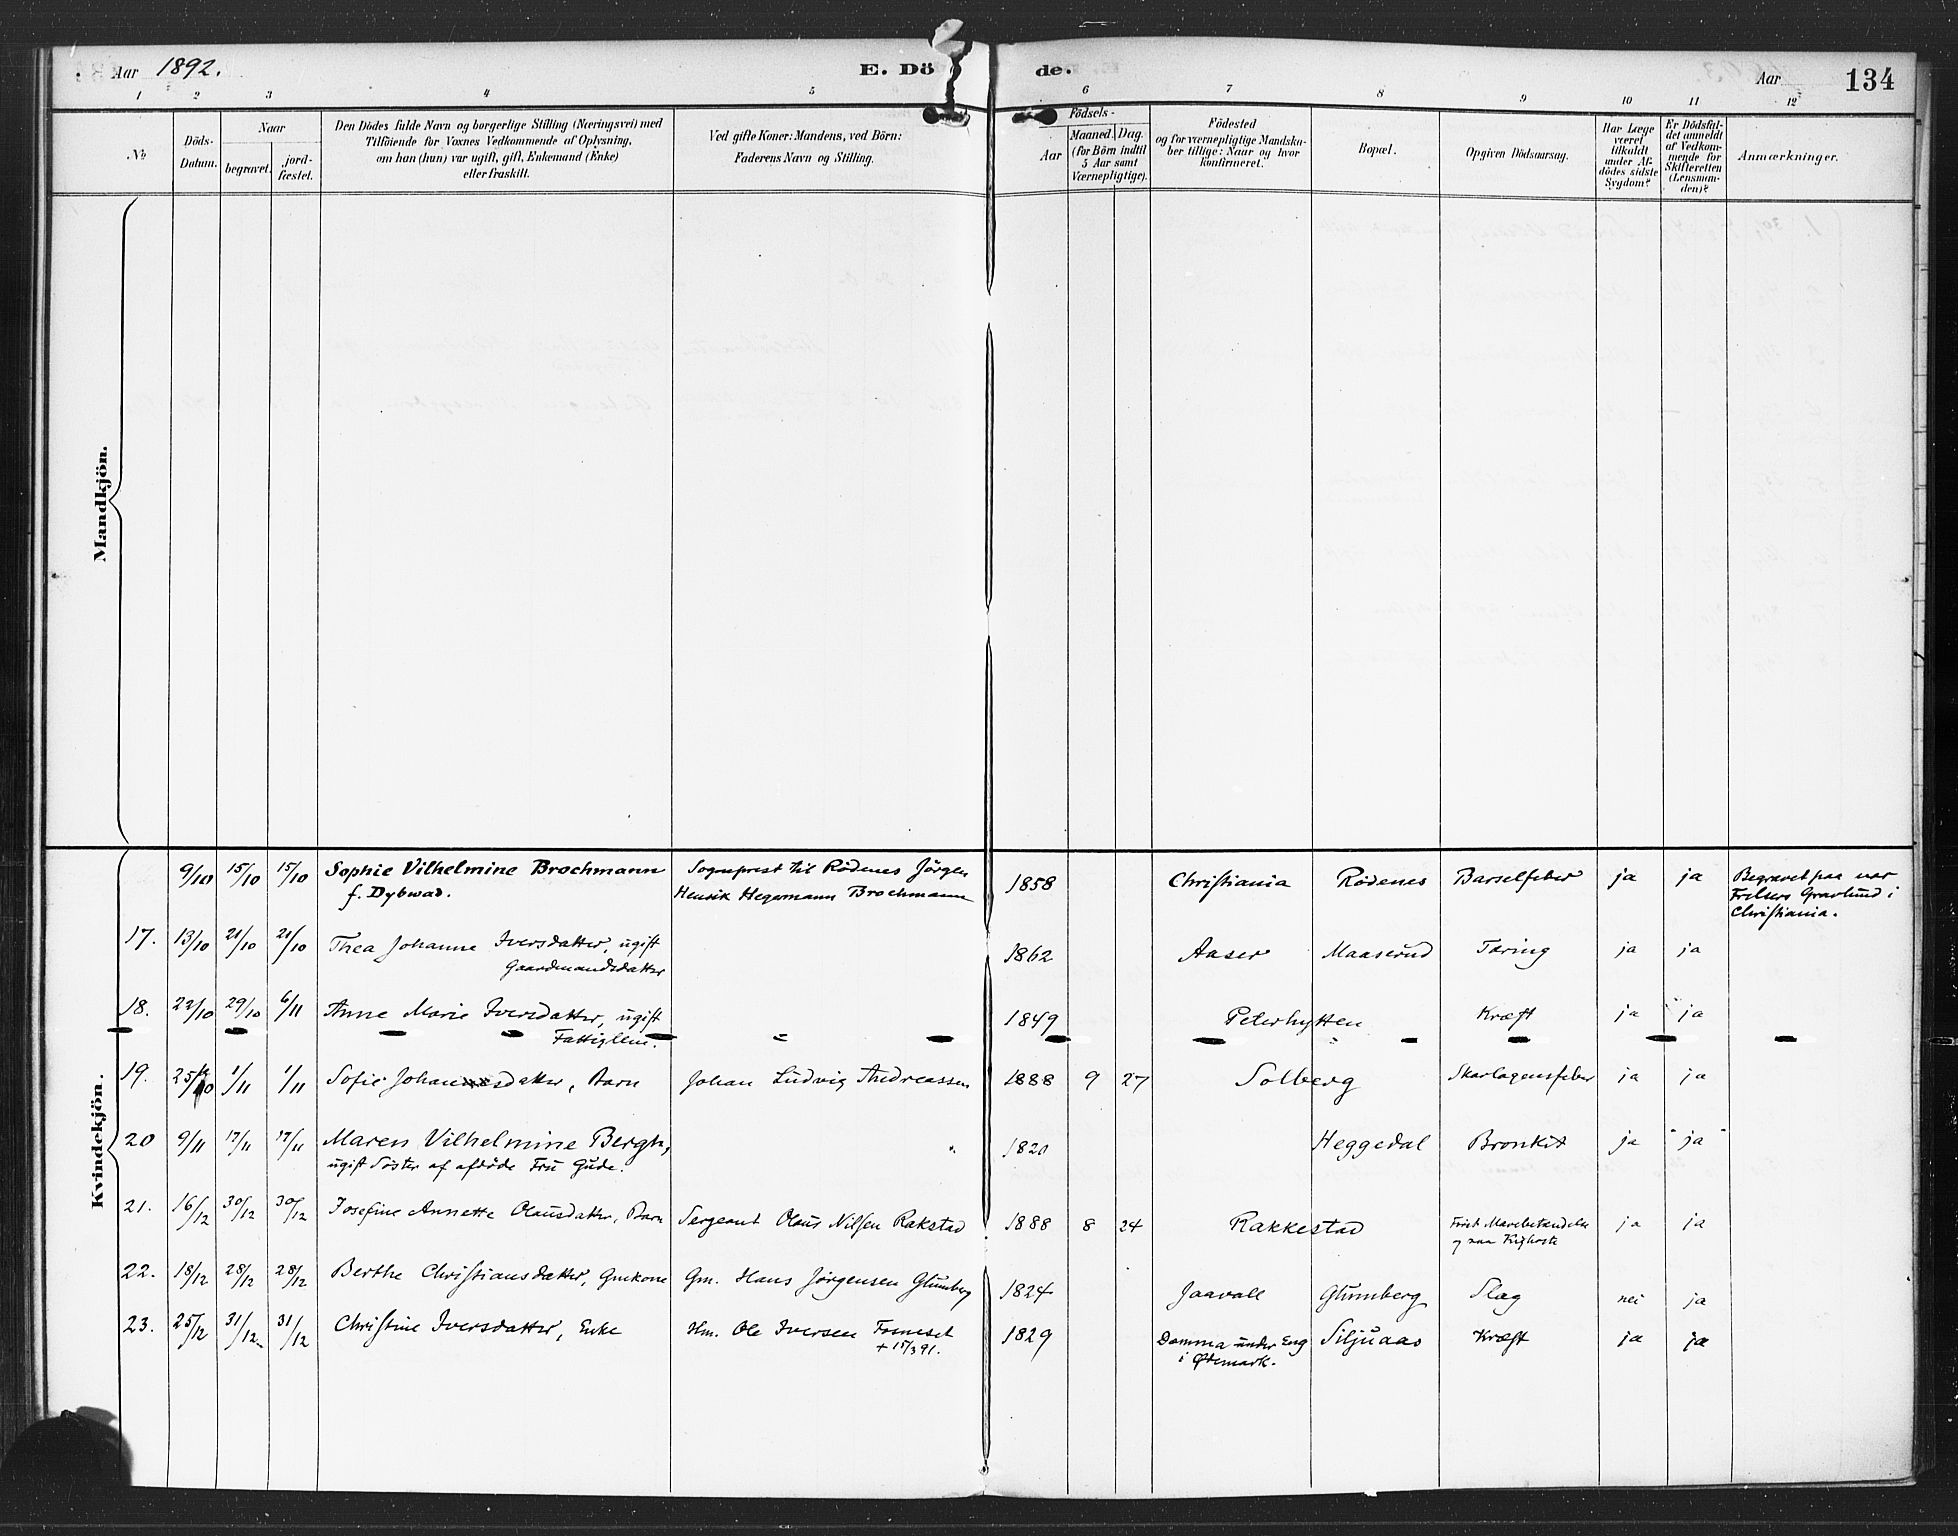 Aar 1892.
E. Dö de.
Aar
134
1 2 3 4 5 6 7 8 9 10 11 12
No
Döds-
Datum.
Naar
begravet.
jord-
fæstet.
Den Dödes fulde Navn og borgerlige Stilling (Næringsvei) med
Tilföiende for Voxnes Vedkommende af Oplysning,
om han (hun) var ugift, gift, Enkemand (Enke)
eller fraskilt.
Ved gifte Koner: Mandens, ved Börn:
Faderens Navn og Stilling.
Födsels-
Aar
Maaned. Dag.
(for Börn indtil
5 Aar samt
Værnepligtige).
Födested
og for værnepligtige Mandska-
ber tillige: Naar og hvor
konfirmeret.
Bopæl.
Opgiven Dödsaarsag.
Har Læge
været
tilkaldt
under Af-
dödes sidste
Sygdom?
Er Dödsfal-
det anmeldt
af Vedkom-
mende for
Skifteretten
(Lensman-
den)?
Anmærkninger.
Mandkjön.
Kvindekjön.
9/10 15/10 15/10 Sophie Vilhelmine Brochmann Sogneprest til Rödenes Jörgen 1858 Christiania Rödenes Barselfeber ja ja Begravet paa vor
f. Dybwad. Henrik Hegermann Brochmann Frelsers Gravlund i
Christiania.
17. 13/10 21/10 21/10 Thea Johanne Iversdatter, ugift 1862 Aaser Maaserud Tæring ja ja
Gaardmandsdatter
18. 22/10 29/10 6/11 Anne Marie Iversdatter, ugift 1849 Peterhytten Kræft ja ja
Fattiglem.
19. 25/10 1/11 1/11 Sofie Johansdatter, Barn Johan Ludvig Andreassen 1888 9 27 Solberg Skarlagensfeber ja ja
20 9/11 17/11 17/11 Maren Vilhelmine Bergh, " 1820 Heggedal Bronkit ja " ja "
ugift Söster af afdöde Fru Gude.
21. 16/12 30/12 30/12 Josefine Annette Olausdatter, Barn Sergeant Olaus Nilsen Rakstad 1888 8 24 Rakkestad Först Mavebetændelse ja ja
og saa Kighoste
22. 18/12 28/12 28/12 Berthe Christiansdatter, Gmkone Gm. Hans Jörgensen Glumberg 1824 Jaavall Glumberg Slag nei ja
23. 25/12 31/12 31/12 Christine Iversdatter, Enke Hm. Ole Iversen Fosneset 1829 Damma under Eng Siljuaas Kræft ja ja
+ 15/3 91. i Ödemark.